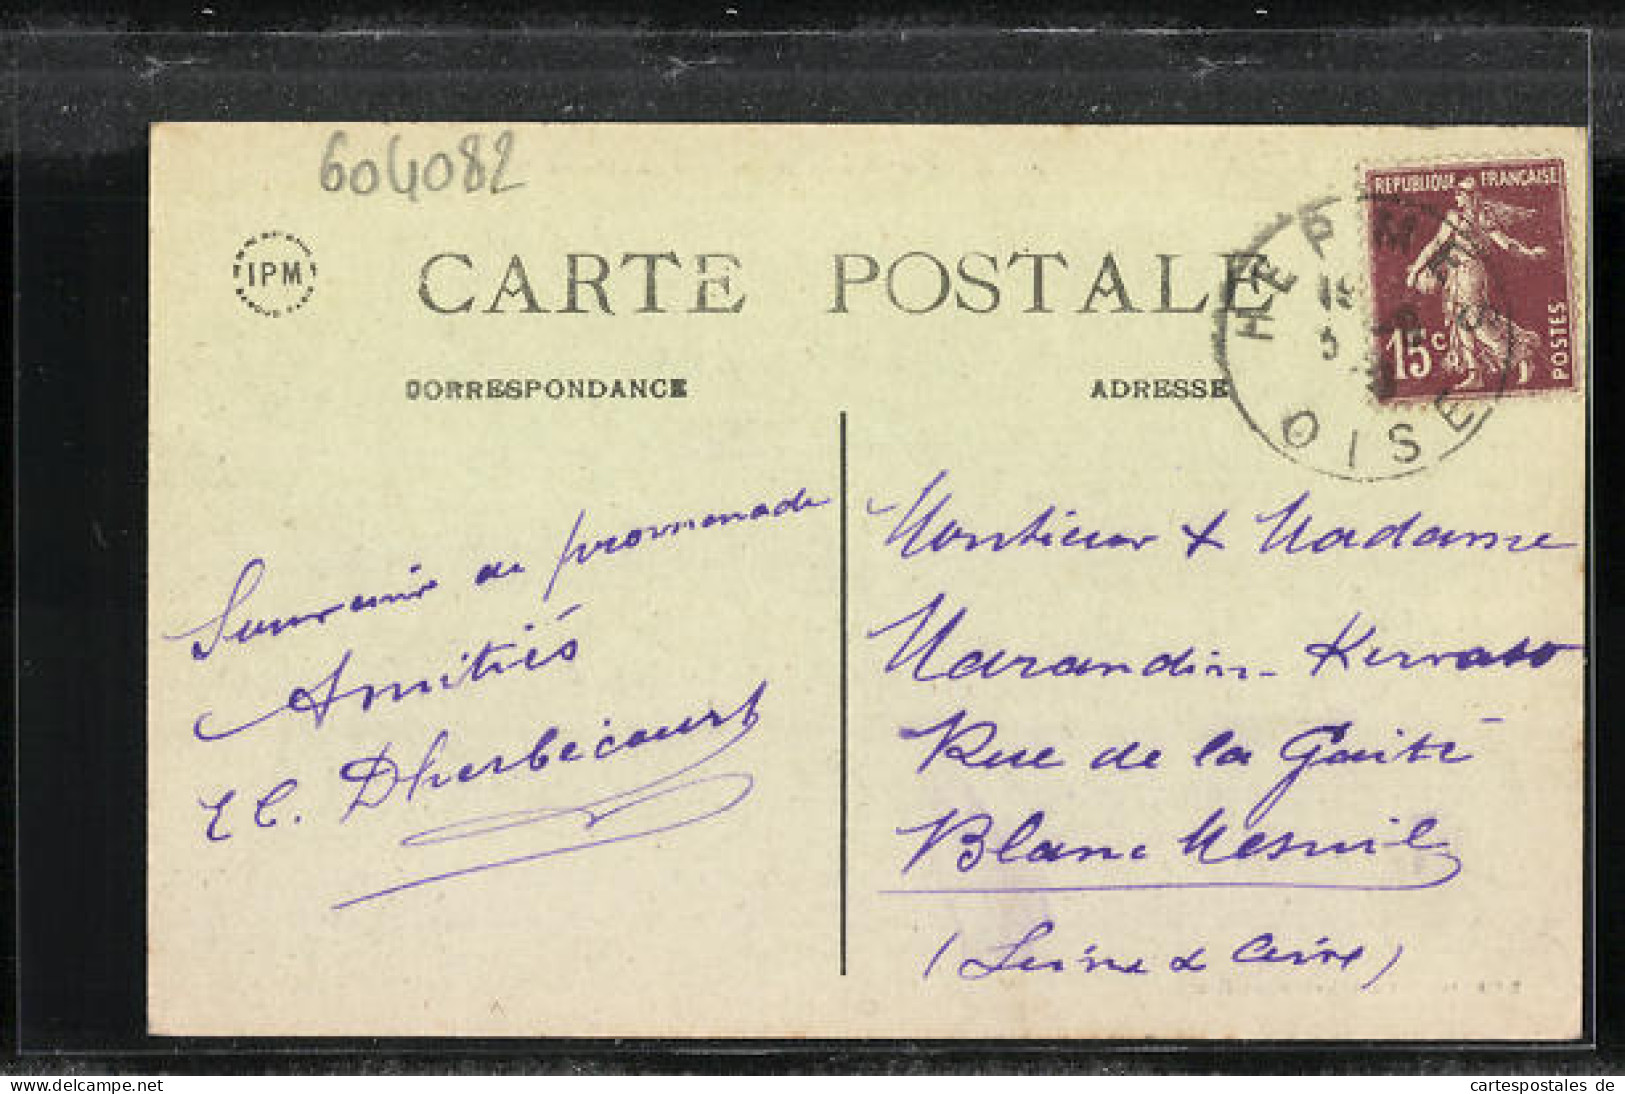 604082
IPM
CARTE POSTALE
CORRESPONDANCE
ADRESSE
REPUBLIQUE FRANÇAISE
15c
POSTES
OISE
Souvenir de promenade
Amitiés
E C. Dherbécourt
Monsieur & Madame
Marandin-
Rue de la Gaité
Blanc Mesnil
(Seine & Oise)
delcampe.net
cartespostales de